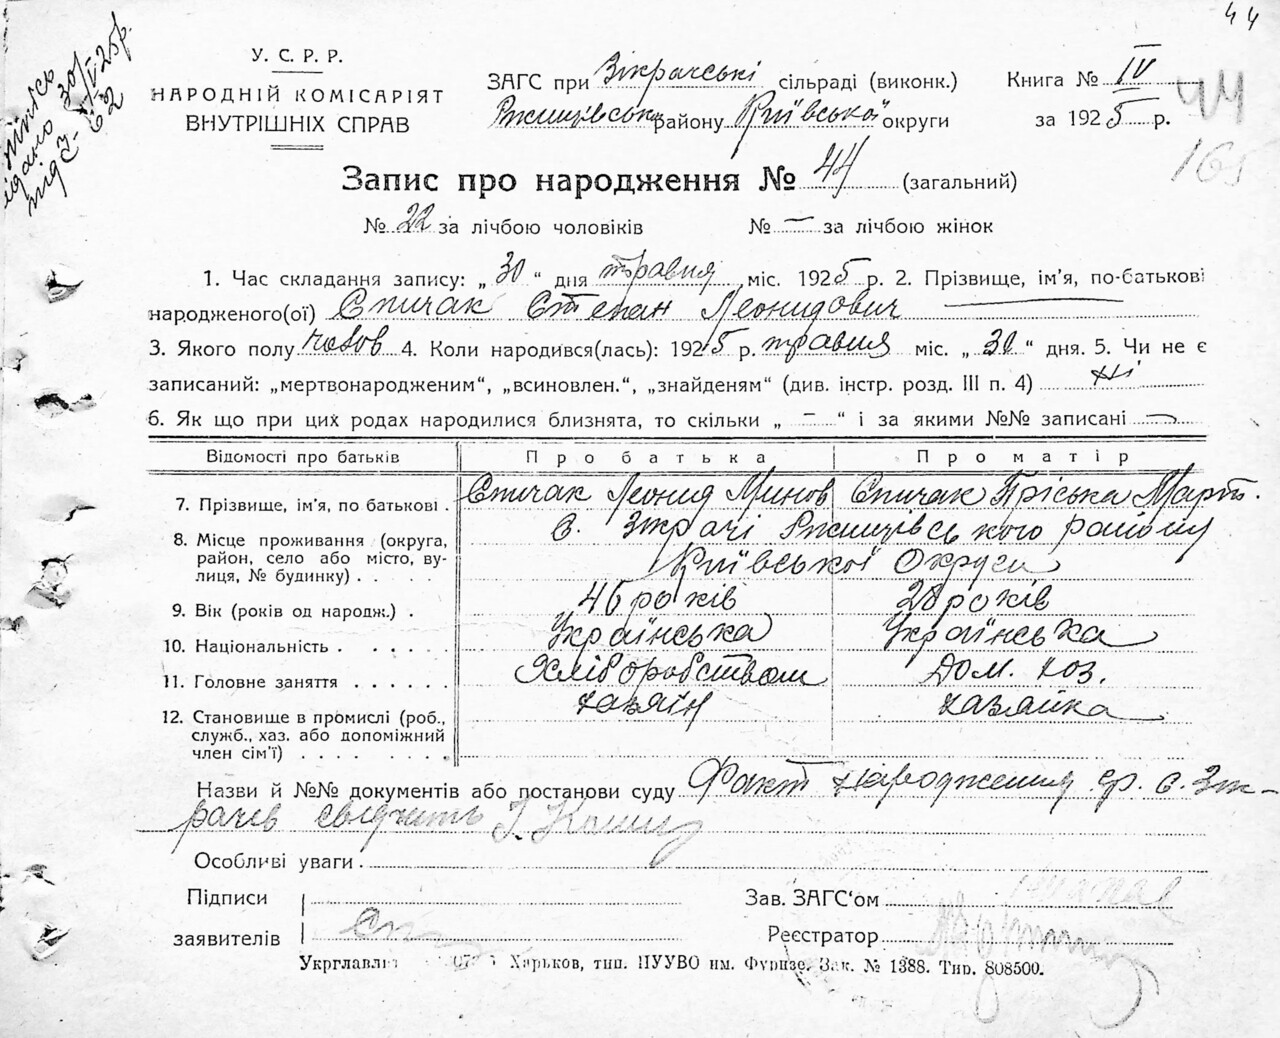 44
У. С. Р. Р.
НАРОДНІЙ КОМІСАРІЯТ
ВНУТРІШНІХ СПРАВ
ЗАГС при Зікрачські сільраді (виконк.)
Ржищівськ району Київської округи
Книга № IV
за 1925 р.
44
165
Запис про народження № 44 (загальний)
№ 22 за лічбою чоловіків № — за лічбою жінок
1. Час складання запису: „ 30 “ дня травня міс. 1925 р. 2. Прізвище, ім’я, по-батькові
народженого(ої) Спичак Степан Леонидович
3. Якого полу чолов 4. Коли народився(лась): 1925 р. травня міс. „ 30 “ дня. 5. Чи не є
записаний: „мертвонародженим“, „всиновлен.“, „знайденям“ (див. інстр. розд. III п. 4) Ні
6. Як що при цих родах народилися близнята, то скільки „ — “ і за якими №№ записані —
Відомості про батьків Про батька Про матір
7. Прізвище, ім’я, по батькові . Спичак Леонид Минов Спичак Пріська Март.
8. Місце проживання (округа, с. Зікрачі Ржищівського району
район, село або місто, ву-
лиця, № будинку) . . . . Київської Округи
9. Вік (років од народж.) . 46 років 28 років
10. Національність . . . . . Українська Українська
11. Головне заняття . . . . . . Хліборобством Дом. хоз.
12. Становище в промислі (роб., хазяїн хазяйка
служб., хаз. або допоміжний
член сім’ї) . . . . . . . .
Назви й №№ документів або постанови суду Факт народження гр. с. Зік-
рачів свідчить
Особливі уваги .
Підписи
заявителів
Зав. ЗАГС‘ом
Реєстратор
Укрглавліт Харьков, тип. ПУУВО им. Фрунзе. Зак. № 1388. Тир. 808500.